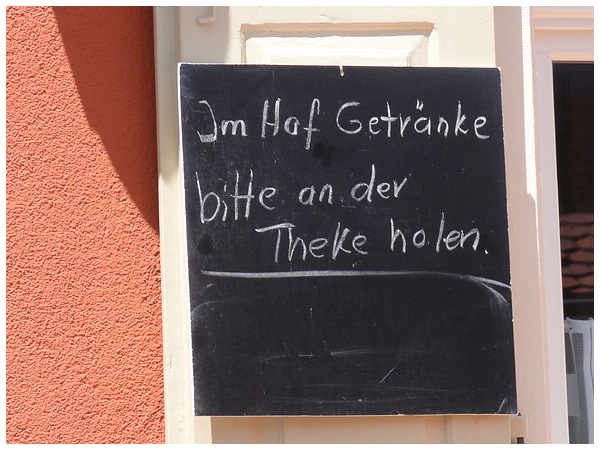 Im Hof Getränke
bitte an der
Theke holen.